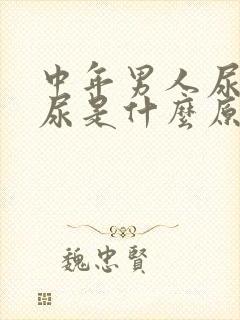 中年男人尿
尿是什麼原
魏忠賢